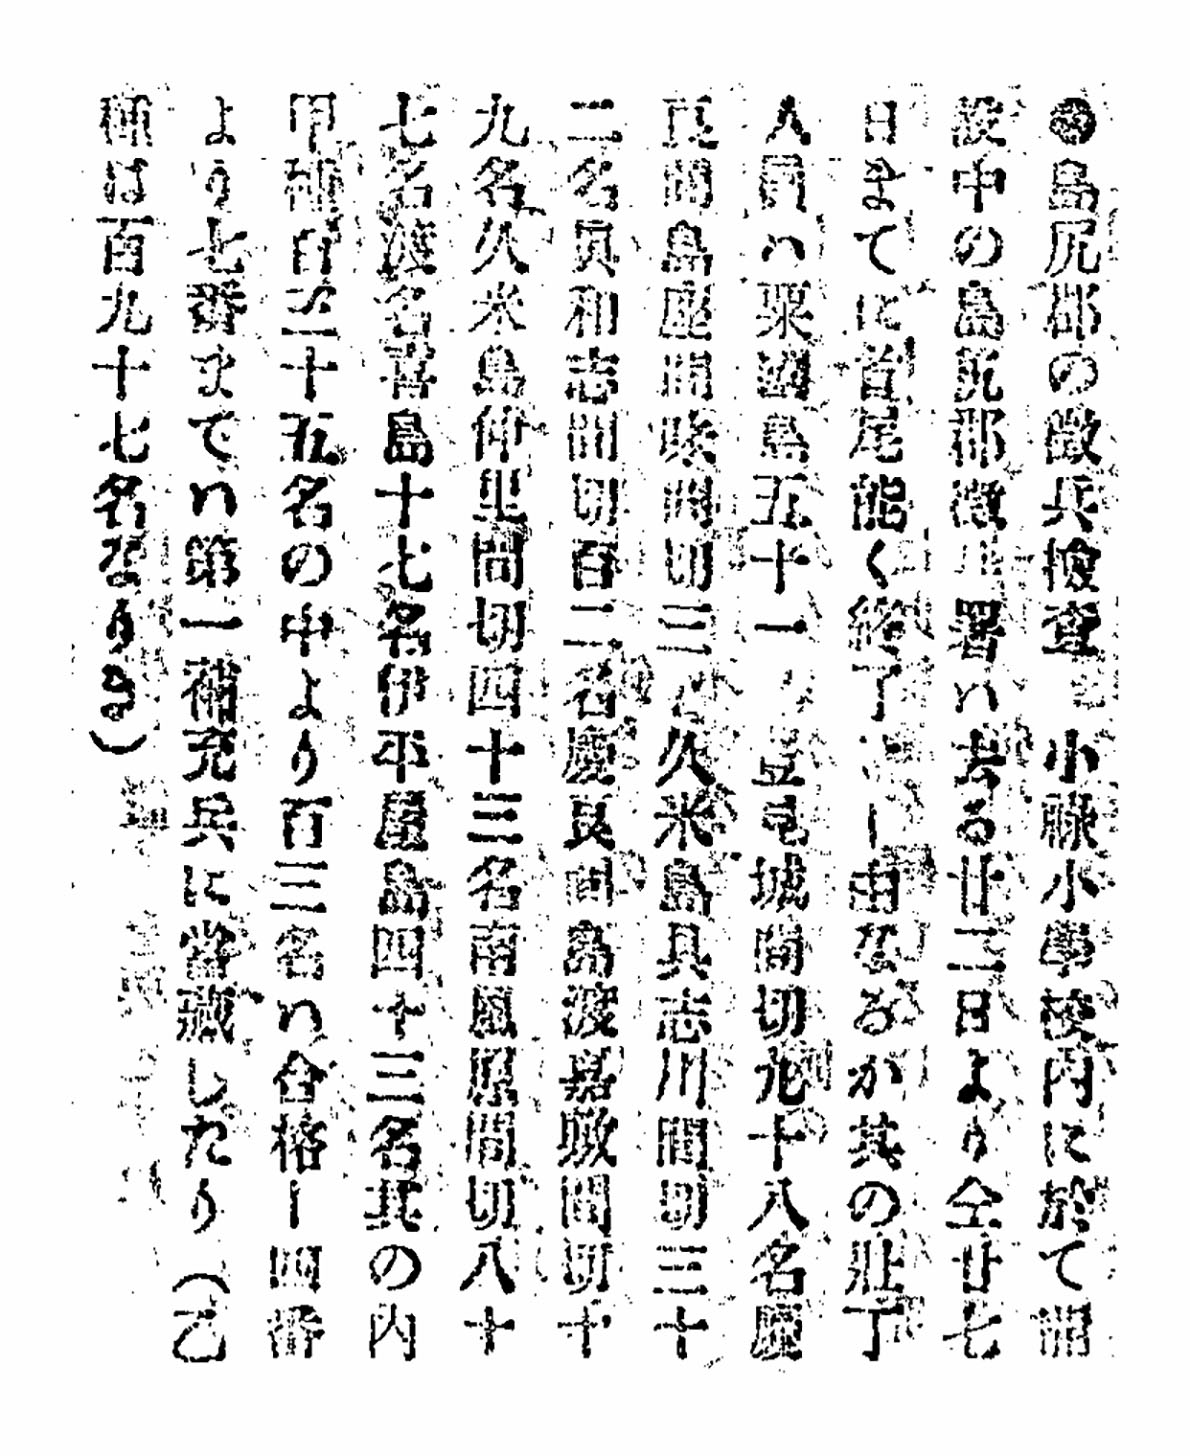 ◉島尻郡の徴兵撿査　小祿小學校内に於て開
設中の島尻郡徴兵署ハ去る廿二日より仝廿七
日まてに首尾能く終了　ー由なるか其の壯丁
人員ハ粟國島五十一　豊見城間切九十八名慶
良間島座間味間切三　久米島具志川間切三十
二名眞和志間切百二名慶良間島渡嘉敷間切十
九名久米島仲里間切四十三名南風原間切八十
七名渡名喜島十七名伊平屋島四十三名其の内
甲種百三十五名の中より百三名ハ合格ー四番
より七番まてハ第一補充兵に當籤したり（乙
種は百九十七名なりき）